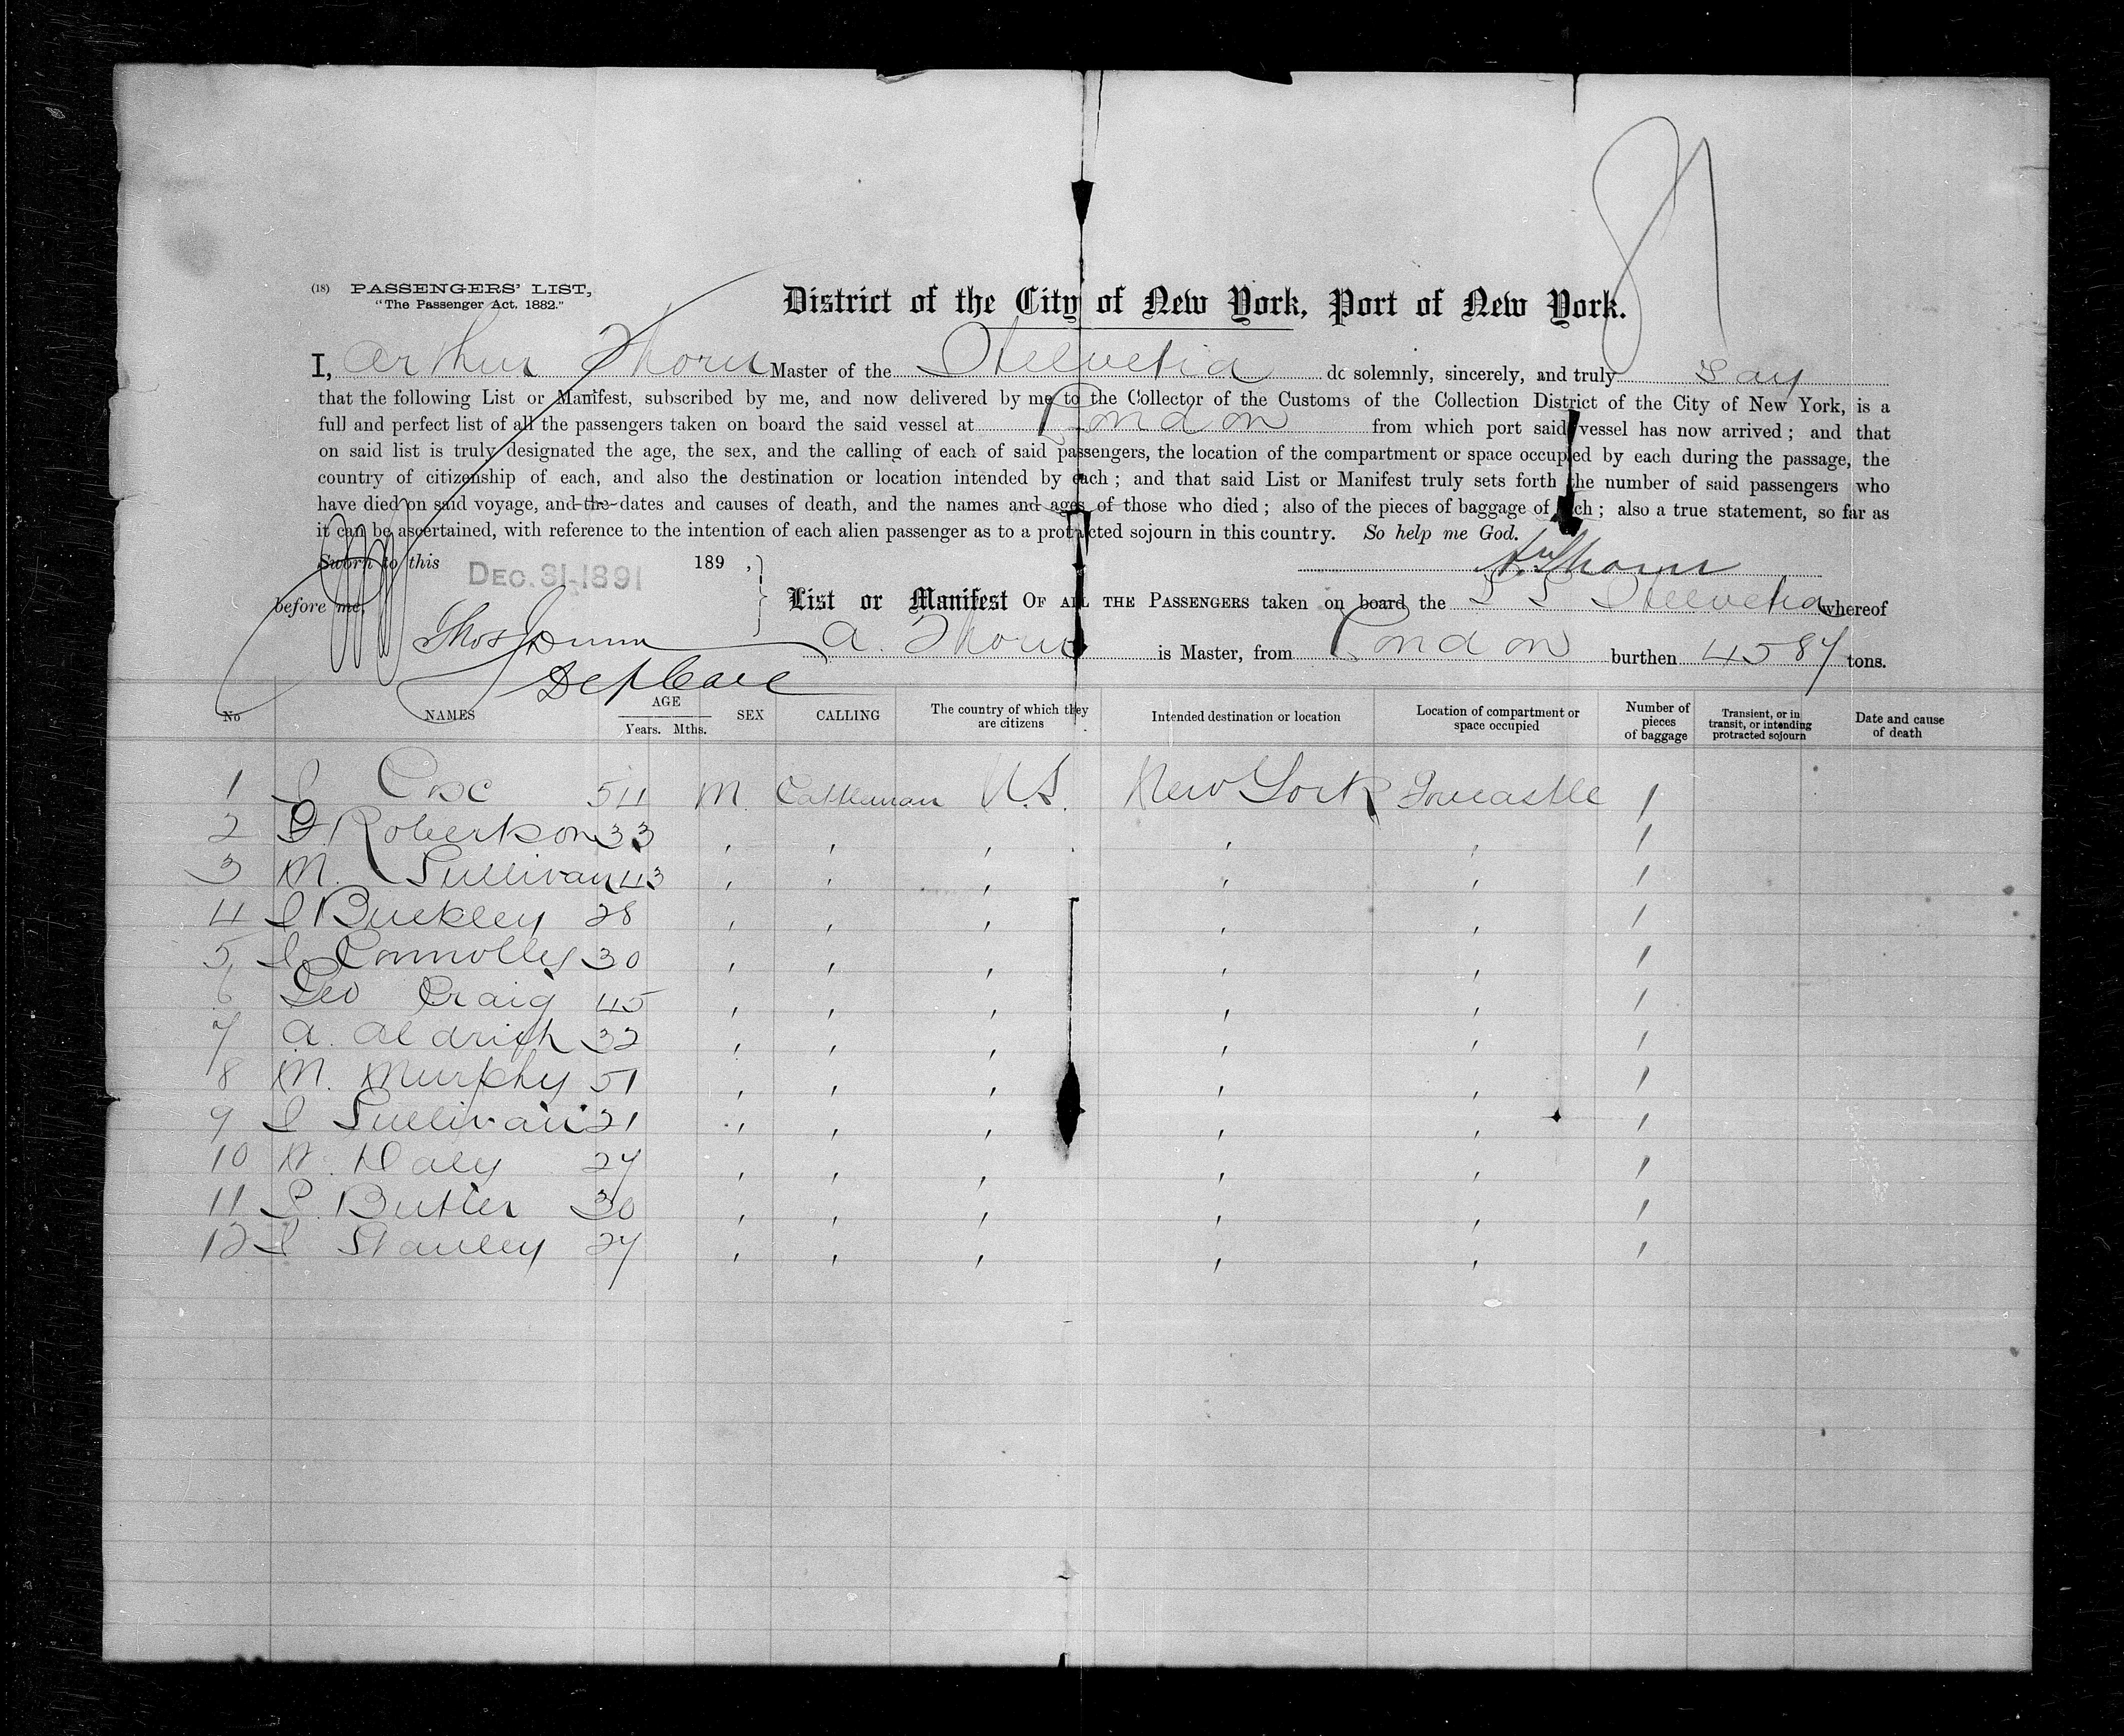 81
(18) PASSENGERS' LIST,
"The Passenger Act, 1882."
District of the City of New York, Port of New York.
I, Arthur Thorn Master of the Helvetia do solemnly, sincerely, and truly say
that the following List or Manifest, subscribed by me, and now delivered by me to the Collector of the Customs of the Collection District of the City of New York, is a
full and perfect list of all the passengers taken on board the said vessel at London from which port said vessel has now arrived; and that
on said list is truly designated the age, the sex, and the calling of each of said passengers, the location of the compartment or space occupied by each during the passage, the
country of citizenship of each, and also the destination or location intended by each; and that said List or Manifest truly sets forth the number of said passengers who
have died on said voyage, and the dates and causes of death, and the names and ages of those who died; also of the pieces of baggage of each; also a true statement, so far as
it can be ascertained, with reference to the intention of each alien passenger as to a protracted sojourn in this country. So help me God.
Sworn to this DEC. 31-1891 189 ,
A. Thorn
before me,
List or Manifest OF ALL THE PASSENGERS taken on board the S S Helvetia whereof
Thos Dunn
A. Thorn is Master, from London burthen 4587 tons.
Dep
No NAMES AGE Years. Mths. SEX CALLING The country of which they are citizens Intended destination or location Location of compartment or space occupied Number of pieces of baggage Transient, or in transit, or intending protracted sojourn Date and cause of death
1 J Cox 54 M. Cattleman U.S. New York Forecastle 1
2 Robertson 33 , , , , , 1
3 M. Sullivan 43 , , , , , 1
4 J Buckley 28 , , , , , 1
5 J. Connolly 30 , , , , , 1
6 Geo Craig 45 , , , , , 1
7 A. Aldrich 32 , , , , , 1
8 M. Murphy 51 , , , , , 1
9 J Sullivan 21 , , , , , 1
10 W. Daly 27 , , , , , 1
11 P. Butler 30 , , , , , 1
12 J Stanley 27 , , , , , 1